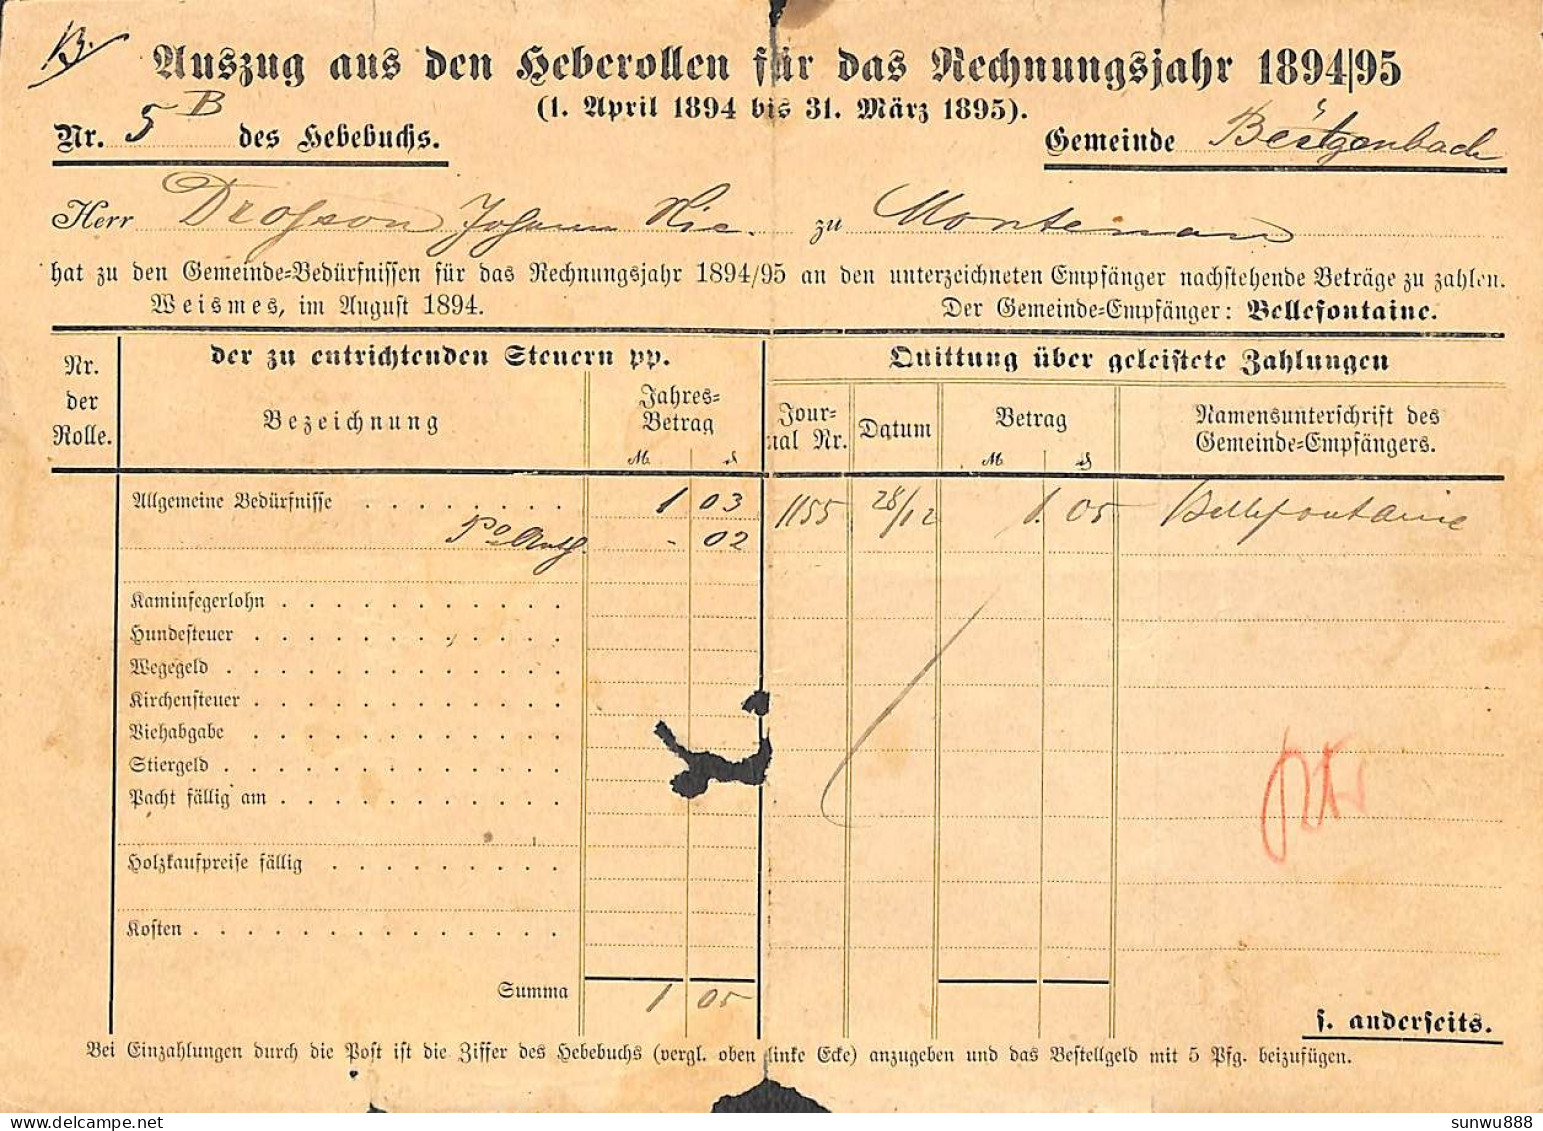 B.
Auszug aus den Heberollen für das Rechnungsjahr 1894/95
(1. April 1894 bis 31. März 1895).
Nr. 5 B des Hebebuchs.
Gemeinde Bütgenbach
Herr Drosson Johann Nic. zu Montenau
hat zu den Gemeinde-Bedürfnissen für das Rechnungsjahr 1894/95 an den unterzeichneten Empfänger nachstehende Beträge zu zahlen.
Weismes, im August 1894.
Der Gemeinde-Empfänger: Bellefontaine.
Nr. der Rolle.
der zu entrichtenden Steuern pp.
Quittung über geleistete Zahlungen
Bezeichnung
Jahres-Betrag
Journal Nr.
Datum
Betrag
Namensunterschrift des Gemeinde-Empfängers.
M. ₰ M. ₰
Allgemeine Bedürfnisse . . . . . . . . 1 03 1155 28/12 1. 05 Bellefontaine
- 02
Kaminfegerlohn . . . . . . . . . . .
Hundesteuer . . . . . . . . . . . .
Wegegeld . . . . . . . . . . . . .
Kirchensteuer . . . . . . . . . . . .
Viehabgabe . . . . . . . . . . . .
Stiergeld . . . . . . . . . . . . .
Pacht fällig am . . . . . . . . . . .
Holzkaufpreise fällig . . . . . . . . .
Kosten . . . . . . . . . . . . . .
Summa 1 05
s. anderseits.
Bei Einzahlungen durch die Post ist die Ziffer des Hebebuchs (vergl. oben linke Ecke) anzugeben und das Bestellgeld mit 5 Pfg. beizufügen.
sunwu888